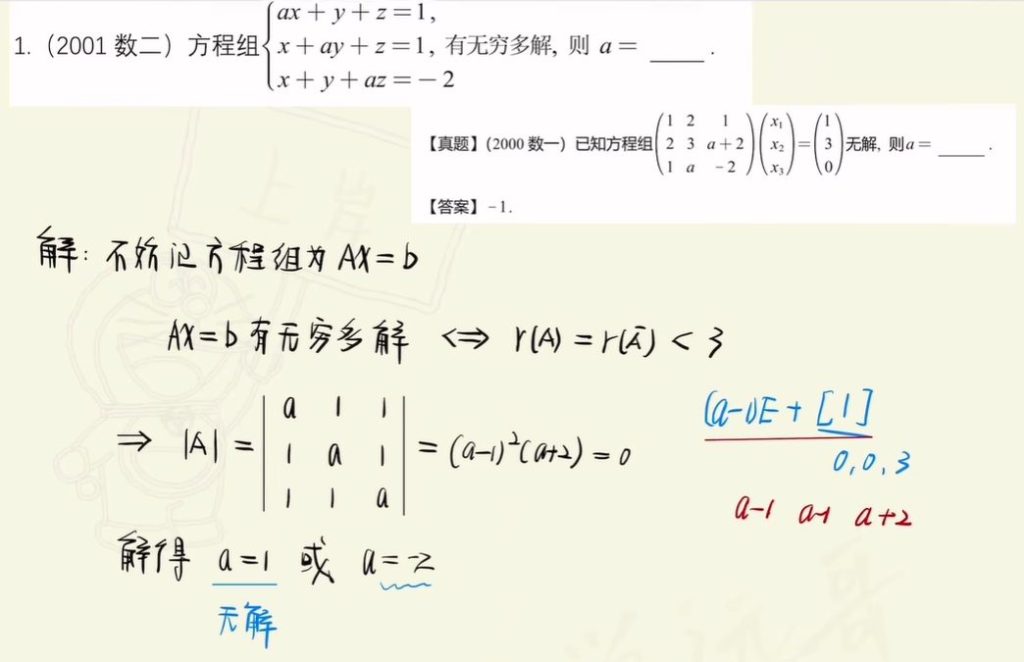 1.（2001 数二）方程组{ax + y + z = 1,
x + ay + z = 1, 有无穷多解, 则 a = ____ .
x + y + az = − 2
【真题】(2000 数一) 已知方程组(1 2 1; 2 3 a+2; 1 a −2)(x₁; x₂; x₃)=(1; 3; 0)无解, 则a = ____ .
【答案】−1.
解: 不妨记方程组为 AX = b
AX = b 有无穷多解 ⟺ r(A) = r(Ā) < 3
⇒ |A| = |a 1 1; 1 a 1; 1 1 a| = (a−1)²(a+2) = 0
(a−1)E + [1]
0, 0, 3
a−1 a−1 a+2
解得 a = 1 或 a = −2
无解
上岸